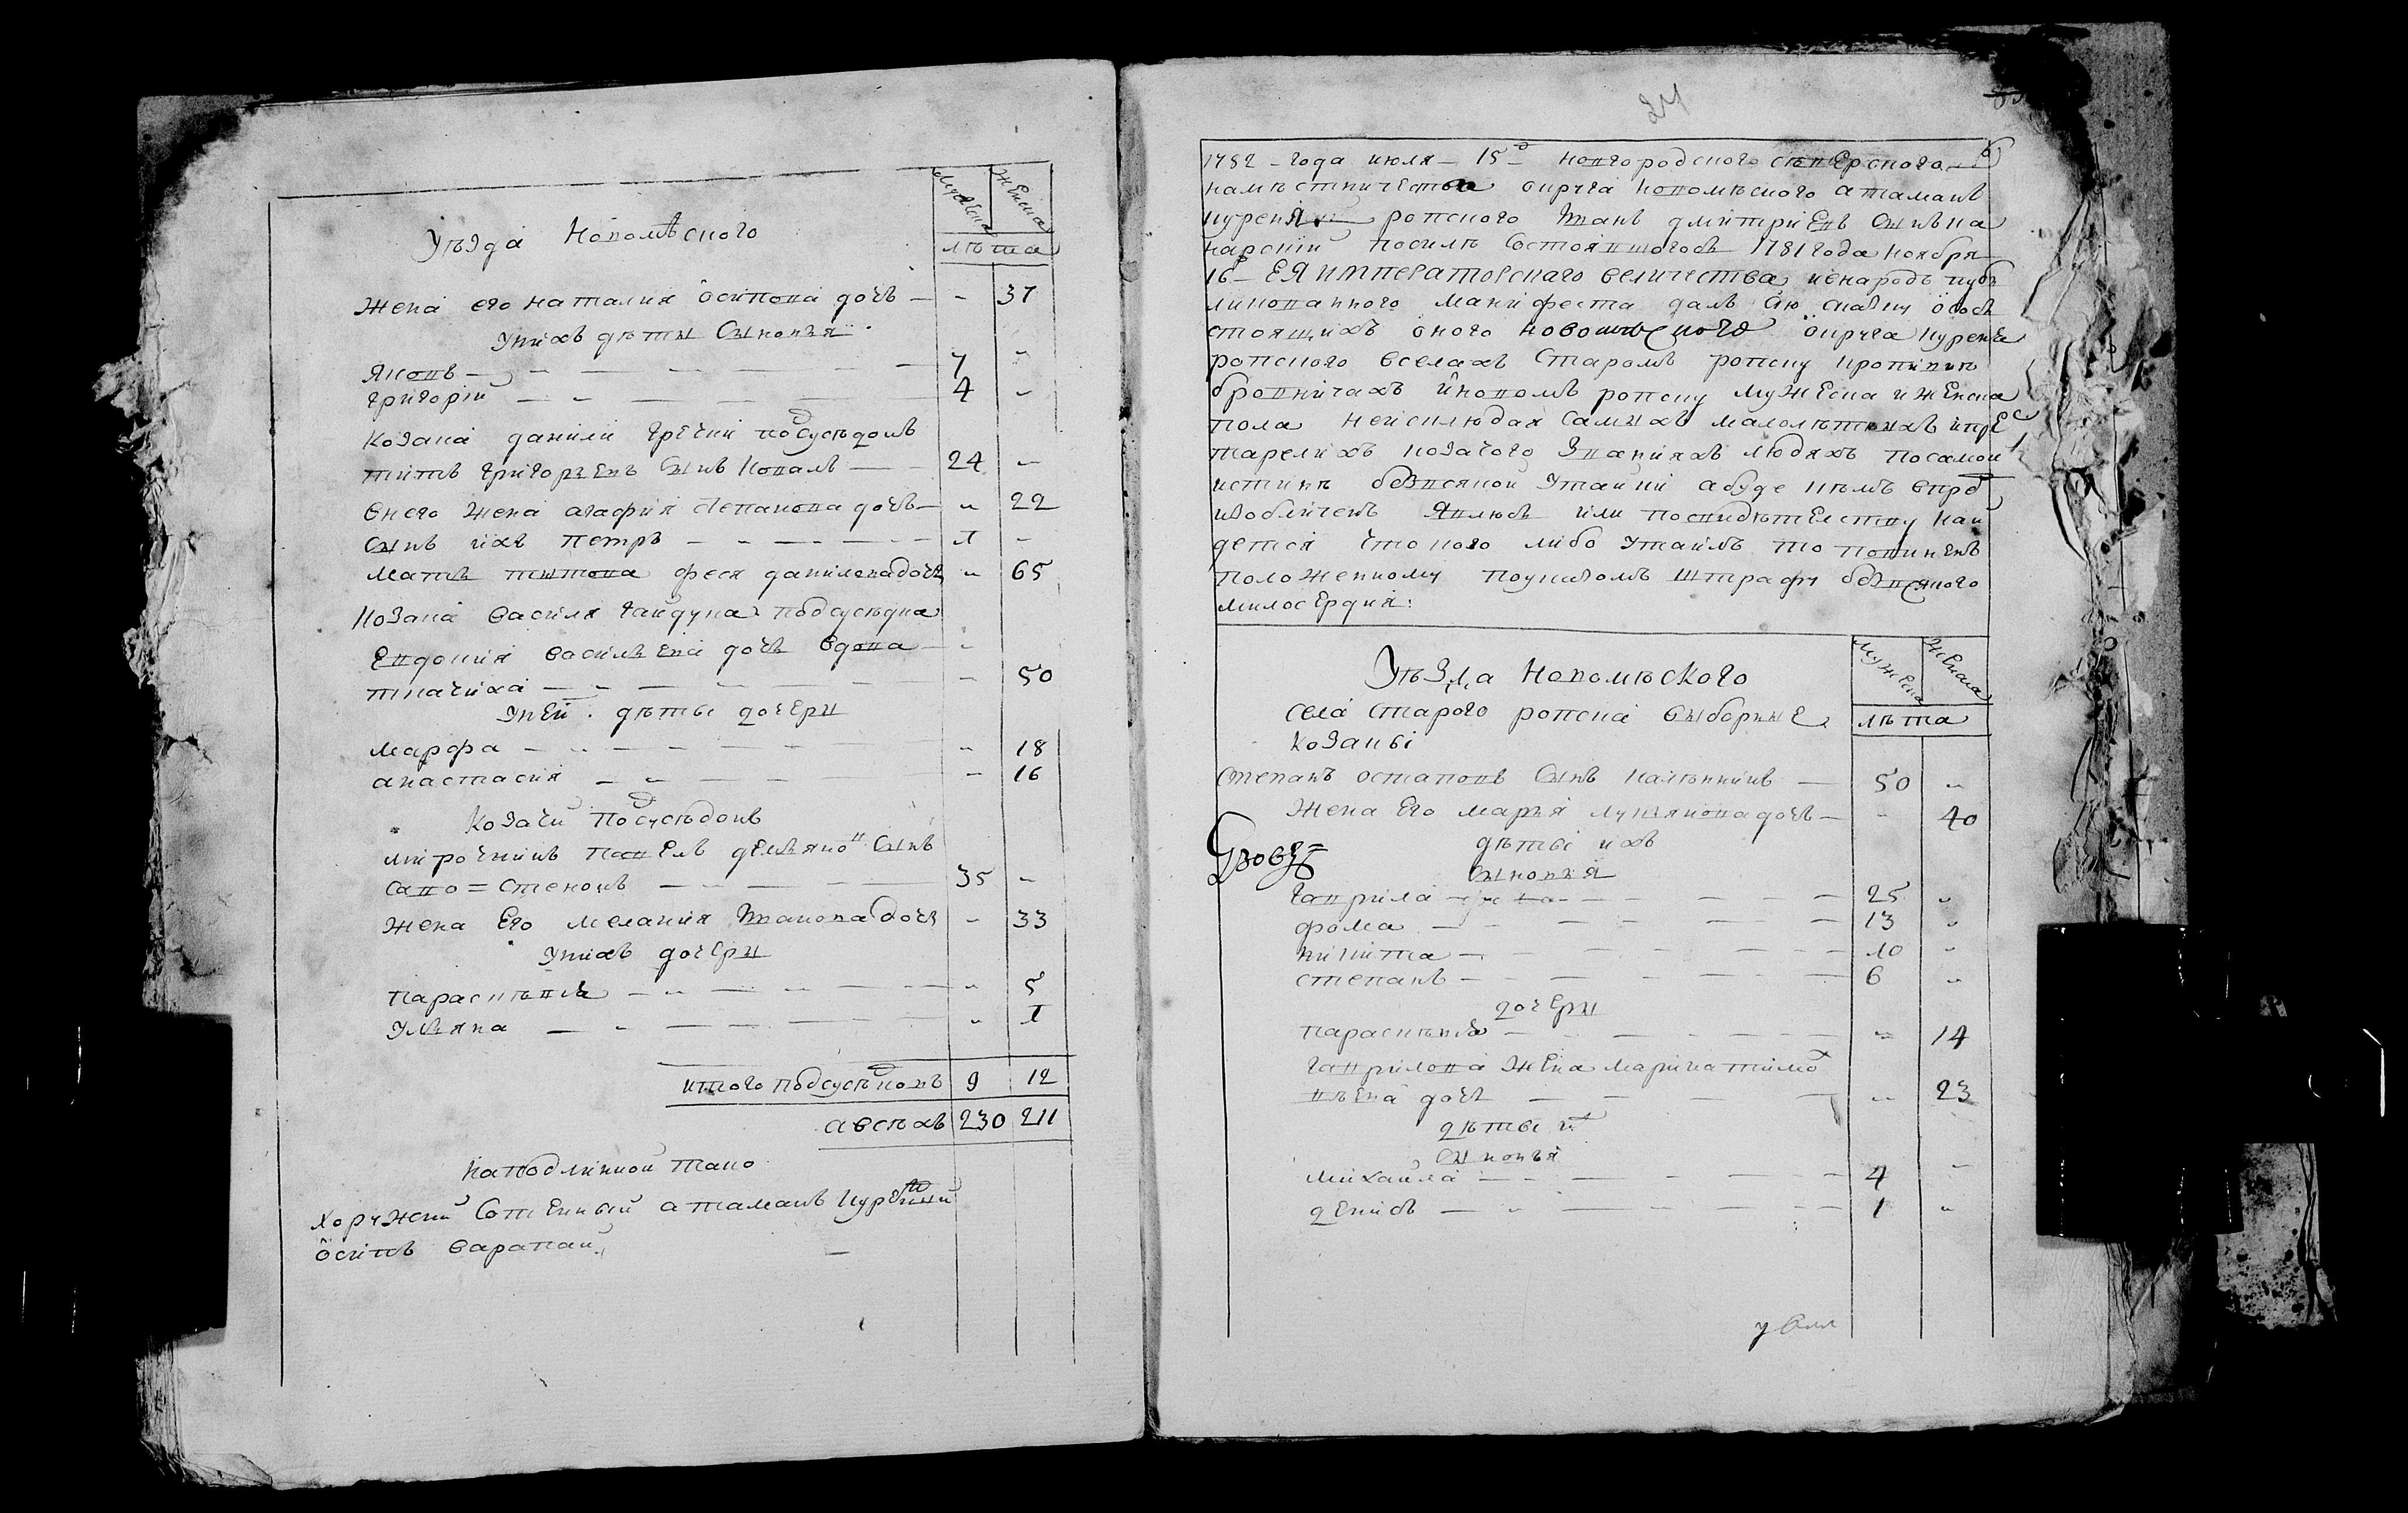 Мужеска Женска
Уѣзда Новомѣского
лѣта
Жена его наталия осипова дочь — - 37
У нихъ дѣты Сыновья
Яковъ — 7 -
григорій — 4 -
Козака данили гречки подсуседокъ
титъ григорьевъ Сынъ Ковалъ — 24 -
Оного жена агафия Степанова дочь — - 22
Сынъ ихъ петръ — 1 -
Мать титова феся данилова дочь - 65
Козака василя гайдука подсуседка
Евдокия василѣва дочь вдова — -
ткачиха — - 50
У неи дѣты дочеры
марфа — - 18
анастасия — - 16
Козачи подсуседокъ
митрочникъ павелъ демьяновъ Сынъ
саво=стенокъ — 35 -
жена Его мелания Иванова дочь - 33
У нихъ дочеры
парасковѣя — - 5
Ульяна — - 1
итого подсуседковъ 9 12
а всѣхъ 230 211
На подлинной тако
Хоружий Сотенный атаманъ Куренный
осипъ сарапай
24
1782 - года июля - 15 д новгородского сѣверского
намѣстничества округа новомѣского атаманъ
куреня ропского Иванъ дмитриевъ Сынъ ка
нарский посилѣ состоявшогось 1781 года ноября
16 ЕЯ ИМПЕРАТОРСКАГО величества и в народъ пуб
ликованного манифеста далъ сию сказку о сос
стоящихъ оного новомѣского округа куреня
ропского в селахъ Старомъ ропску кропивнѣ
бровничахъ и новомъ ропску мужеска и женска
пола неисключая самыхъ малолѣтныхъ и пре
старелихъ козачого званияхъ людяхъ по самой
истинѣ безвсякой утайки а буде кѣмъ впред
изобличенъ явлюсь или по свидѣтелству най
детса что кого либо утаилъ то повиненъ
положенному по указомъ штрафу безвсякого
милосердия:
Мужеска Женска
Уѣзда Новомѣского
села Старого ропска выборные
козаки
лѣта
Степанъ остаповъ Сынъ — 50 -
жена его марья лукьянова дочь — - 40
дѣты ихъ
Сыновья
гаврила — 25 -
фома — 13 -
никита — 10 -
степанъ — 6 -
дочеры
парасковѣя — - 14
гаврилова жена марина тимо
ѣева дочь — - 23
дѣты их
сыновья
михайла — 4 -
денисъ — 1 -